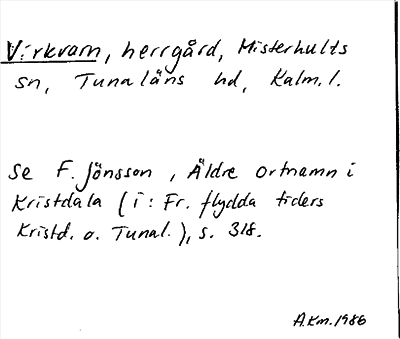 Virkvarn, herrgård, Misterhults
sn, Tunaläns hd, Kalm. l.
Se F. Jönsson, Äldre ortnamn i
Kristdala (i: Fr. flydda tiders
Kristd. o. Tunal.), s. 318.
A.Km. 1986